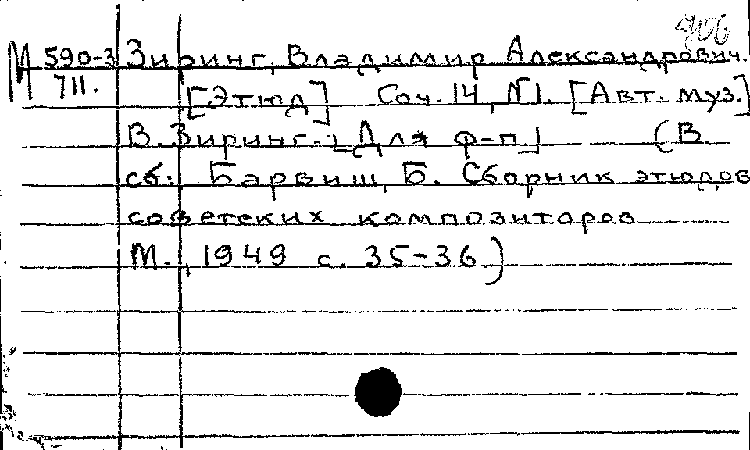 906
М 590-3 Зиринг, Владимир Александрович.
711. [Этюд] Соч. 14, №1. [Авт. муз.]
В. Зиринг. [Для ф-п] (В
сб: Барвиш, Б. Сборник этюдов
советских композиторов
М., 1949 с. 35-36)